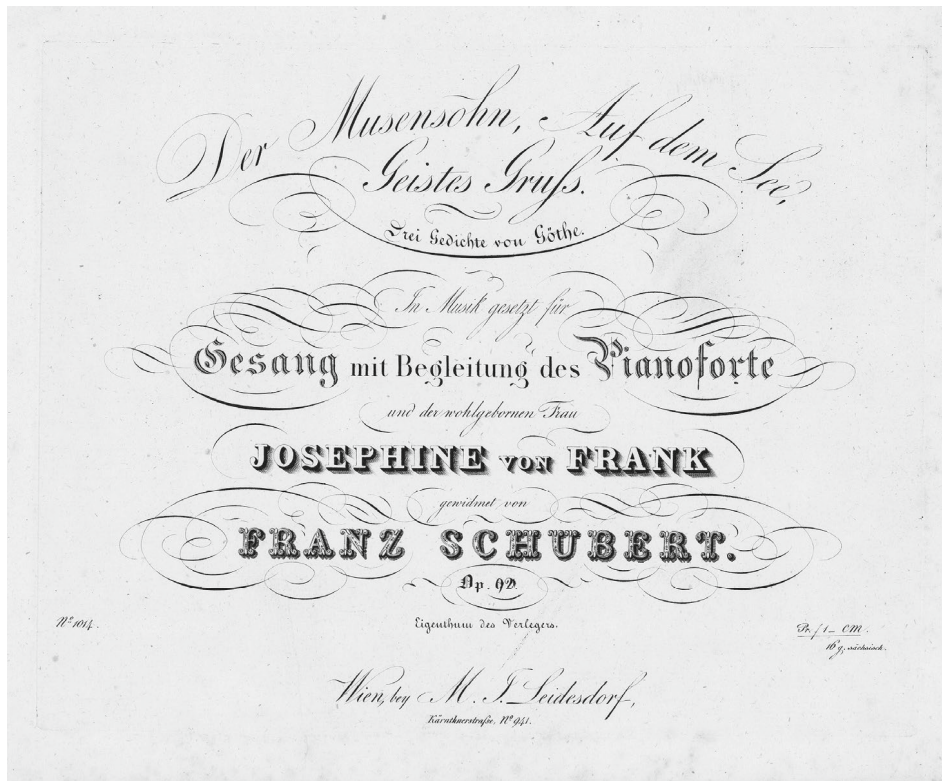 Der Musensohn, Auf dem See,
Geistes Gruſs.
Drei Gedichte von Göthe.
In Musik gesetzt für
Gesang mit Begleitung des Pianoforte
und der wohlgebornen Frau
JOSEPHINE VON FRANK
gewidmet von
FRANZ SCHUBERT.
Op. 92.
Eigenthum des Verlegers.
No 1014.
Pr. f 1 _ CM.
16 g. sächsisch.
Wien, bey M. J. Leidesdorf,
Kärnthnerstraße, No 941.